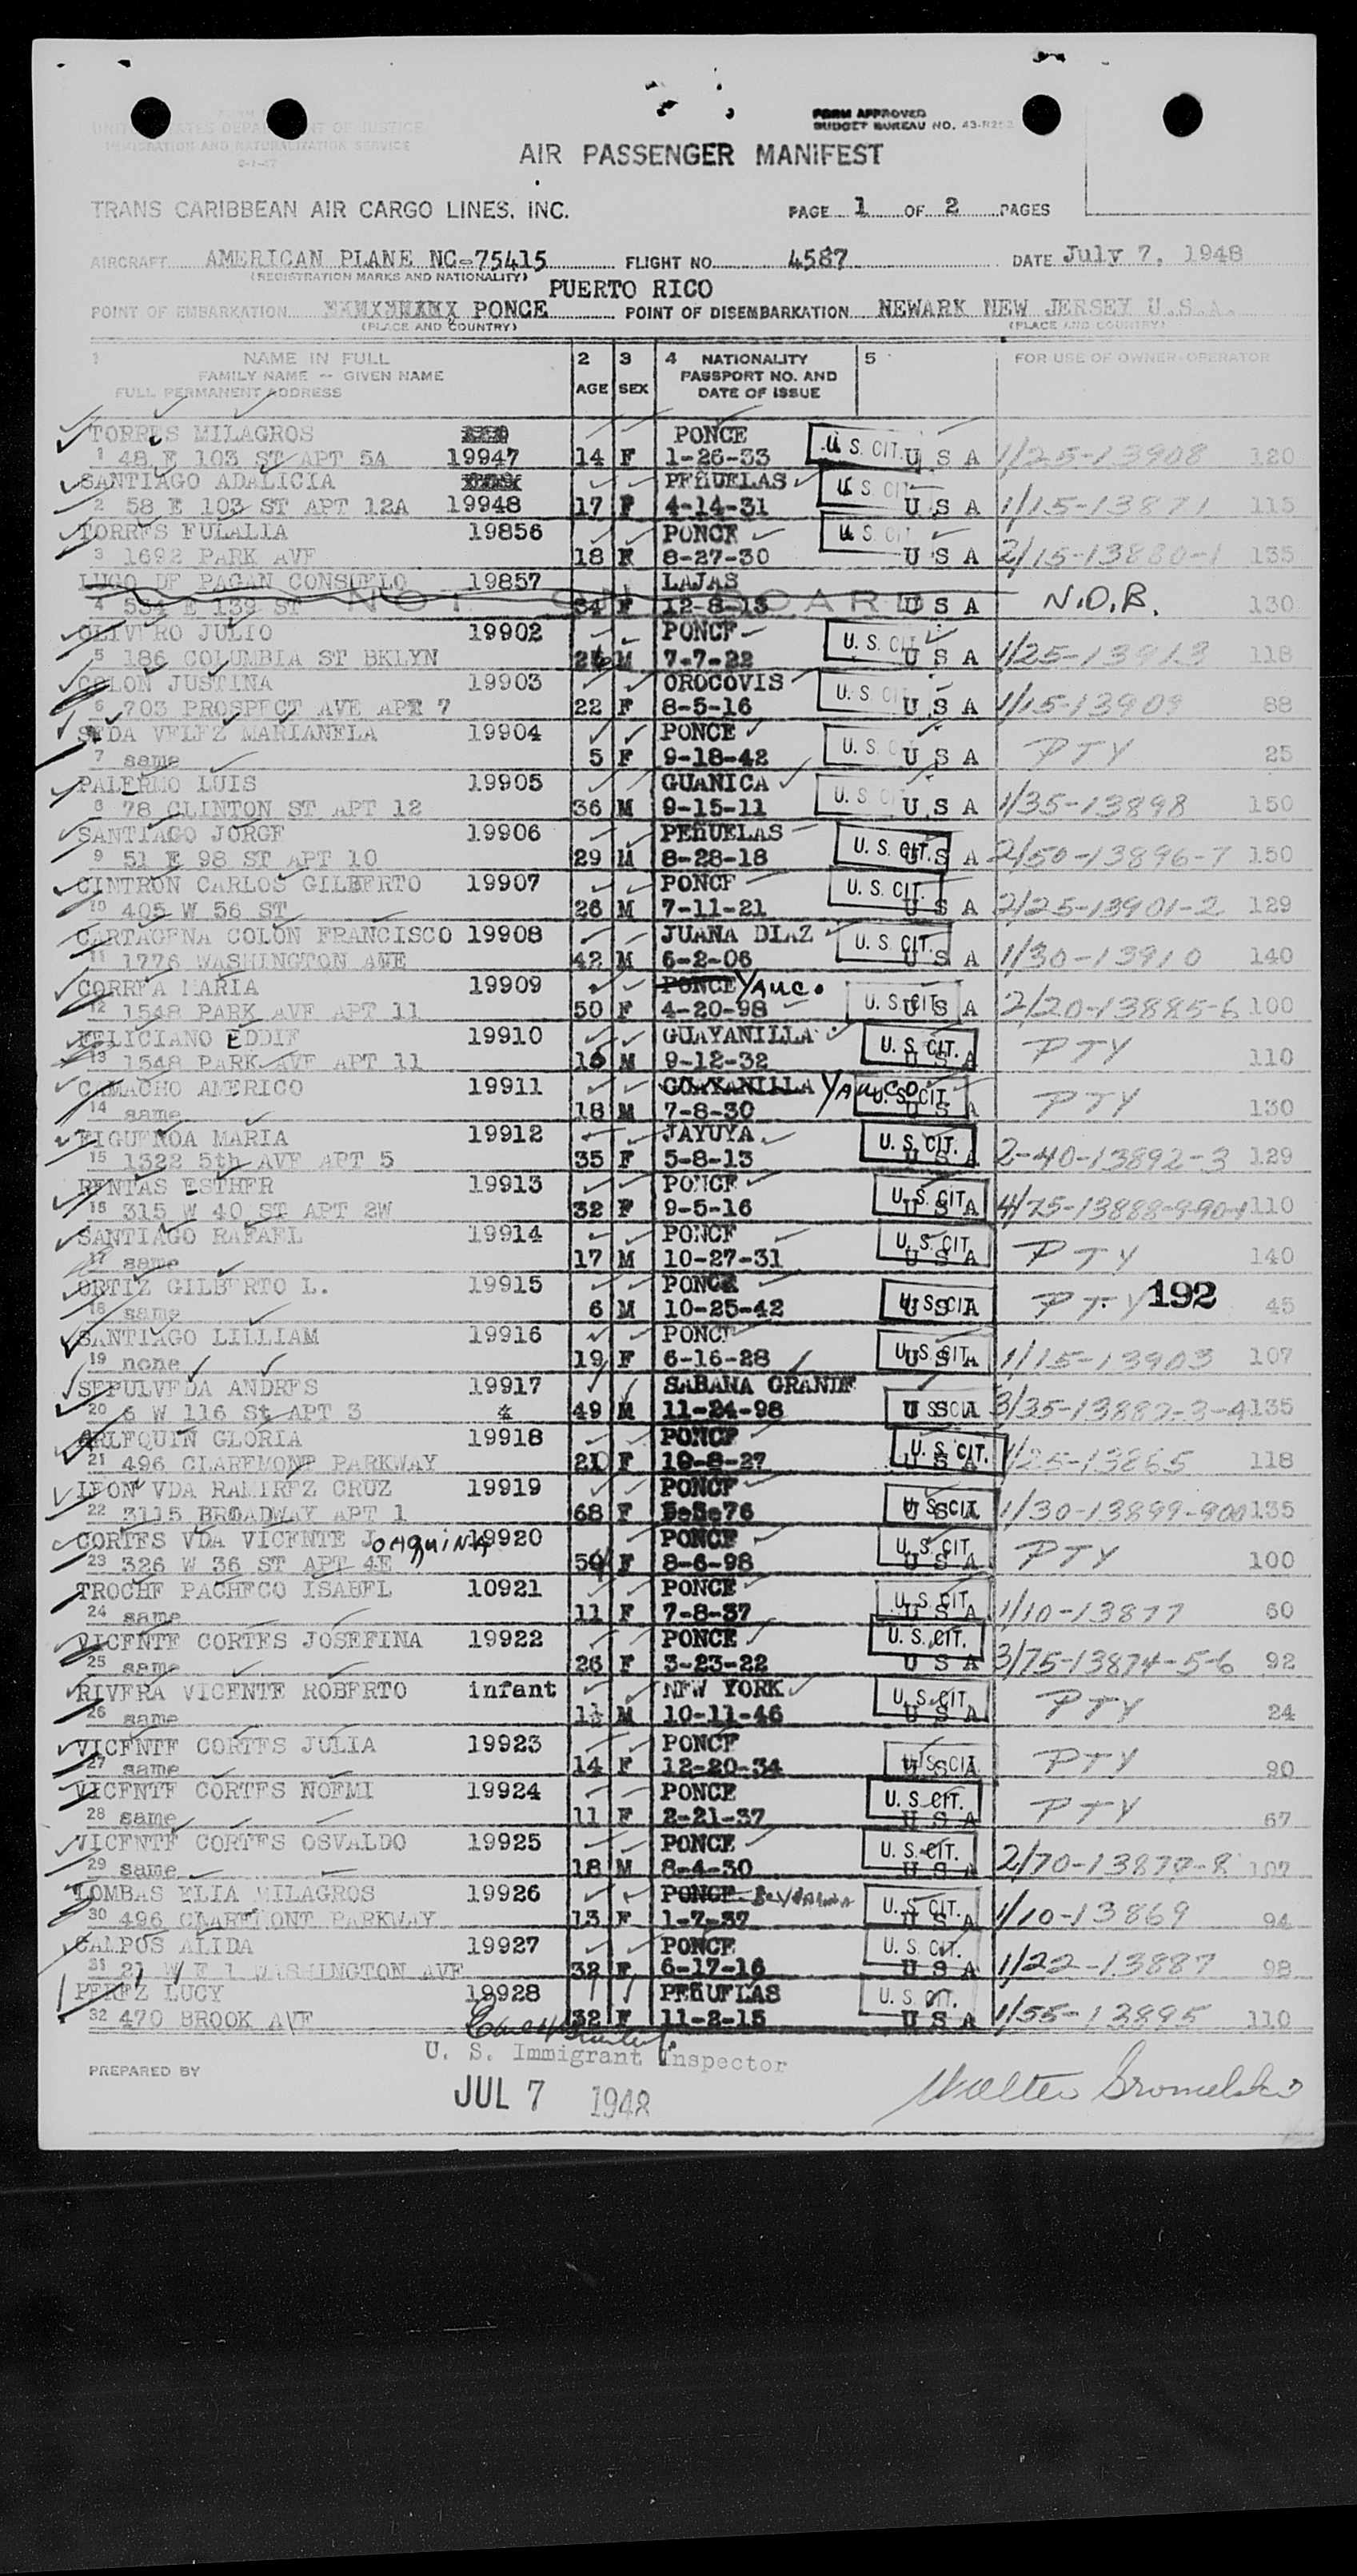 UNITED STATES DEPARTMENT OF JUSTICE
IMMIGRATION AND NATURALIZATION SERVICE
FORM APPROVED
BUDGET BUREAU NO. 43-R252
AIR PASSENGER MANIFEST
TRANS CARIBBEAN AIR CARGO LINES, INC.
PAGE 1 OF 2 PAGES
AIRCRAFT AMERICAN PLANE NC-75415 FLIGHT NO. 4587 DATE July 7, 1948
(REGISTRATION MARKS AND NATIONALITY)
PUERTO RICO
POINT OF EMBARKATION PONCE POINT OF DISEMBARKATION NEWARK NEW JERSEY U.S.A.
(PLACE AND COUNTRY) (PLACE AND COUNTRY)
1 NAME IN FULL 2 3 4 NATIONALITY 5 FOR USE OF OWNER-OPERATOR
FAMILY NAME -- GIVEN NAME AGE SEX PASSPORT NO. AND
FULL PERMANENT ADDRESS DATE OF ISSUE
TORRES MILAGROS PONCE U.S. CIT.
1 48 E 103 ST APT 5A 19947 14 F 1-26-33 U S A 1/25-13908 120
SANTIAGO ADALICIA PEÑUELAS U.S. CIT
2 58 E 103 ST APT 12A 19948 17 F 4-14-31 U S A 1/15-13871 115
TORRES EULALIA 19856 PONCE U.S. CIT
3 1692 PARK AVE 18 F 8-27-30 U S A 2/15-13880-1 135
LUGO DE PAGAN CONSUELO 19857 LAJAS
4 534 E 139 ST NOT ON BOARD 34 F 12-8-13 U S A N.O.B. 130
OLIVERO JULIO 19902 PONCE U.S. CIT
5 186 COLUMBIA ST BKLYN 26 M 7-7-22 U S A 1/25-13913 118
COLON JUSTINA 19903 OROCOVIS U.S. CIT
6 703 PROSPECT AVE APT 7 22 F 8-5-16 U S A 1/15-13909 88
SEDA VELEZ MARIANELA 19904 PONCE U.S. C
7 same 5 F 9-18-42 U S A PTY 25
PALERMO LUIS 19905 GUANICA U.S. C
8 78 CLINTON ST APT 12 36 M 9-15-11 U S A 1/35-13898 150
SANTIAGO JORGE 19906 PEÑUELAS U.S. CIT.
9 51 E 98 ST APT 10 29 M 8-28-18 U S A 2/50-13896-7 150
CINTRON CARLOS GILBERTO 19907 PONCE U.S. CIT.
10 405 W 56 ST 26 M 7-11-21 U S A 2/25-13901-2 129
CARTAGENA COLON FRANCISCO 19908 JUANA DIAZ U.S. CIT.
11 1776 WASHINGTON AVE 42 M 6-2-06 U S A 1/30-13910 140
CORREA MARIA 19909 PONCE Yauco U.S. CIT
12 1548 PARK AVE APT 11 50 F 4-20-98 U S A 2/20-13885-6 100
FELICIANO EDDIE 19910 GUAYANILLA U.S. CIT.
13 1548 PARK AVE APT 11 15 M 9-12-32 U S A PTY 110
CAMACHO AMERICO 19911 GUAYANILLA YAUCO U.S. CIT
14 same 18 M 7-8-30 U S A PTY 130
FIGUEROA MARIA 19912 JAYUYA U.S. CIT.
15 1322 5th AVE APT 5 35 F 5-8-13 U S A 2-40-13892-3 129
RENTAS ESTHER 19913 PONCE U.S. CIT
16 315 W 40 ST APT 2W 32 F 9-5-16 U S A 4/75-13888-9-90-1 110
SANTIAGO RAFAEL 19914 PONCE U.S. CIT
17 same 17 M 10-27-31 U S A PTY 140
ORTIZ GILBERTO L. 19915 PONCE
18 same 6 M 10-25-42 U S A PTY 192 45
SANTIAGO LILLIAM 19916 PONCE U.S. CIT.
19 none 19 F 6-16-28 U S A 1/15-13903 107
SEPULVEDA ANDRES 19917 SABANA GRANDE
20 6 W 116 St APT 3 4 49 M 11-24-98 U S A 3/35-13882-3-4 135
ARLEQUIN GLORIA 19918 PONCE U.S. CIT.
21 496 CLAREMONT PARKWAY 21 F 10-8-27 U S A 1/25-13865 118
LEON VDA RAMIREZ CRUZ 19919 PONCE
22 3115 BROADWAY APT 1 68 F U S A 1/30-13899-900 135
CORTES VDA VICENTE JOAQUINA 19920 PONCE U.S. CIT.
23 326 W 36 ST APT 4E 50 F 8-6-98 U S A PTY 100
TROCHE PACHECO ISABEL 10921 PONCE U.S. CIT.
24 same 11 F 7-8-37 U S A 1/10-13877 60
VICENTE CORTES JOSEFINA 19922 PONCE U.S. CIT.
25 same 26 F 3-23-22 U S A 3/75-13874-5-6 92
RIVERA VICENTE ROBERTO infant NEW YORK U.S. CIT.
26 same 1½ M 10-11-46 U S A PTY 24
VICENTE CORTES JULIA 19923 PONCE
27 same 14 F 12-20-34 U S A PTY 90
VICENTE CORTES NOEMI 19924 PONCE U.S. CIT.
28 same 11 F 2-21-37 U S A PTY 67
VICENTE CORTES OSVALDO 19925 PONCE U.S. CIT.
29 same 18 M 8-4-30 U S A 2/70-13877-8 107
LOMBAS ELIA MILAGROS 19926 PONCE U.S. CIT.
30 496 CLAREMONT PARKWAY 13 F 1-7-37 U S A 1/10-13869 94
CAMPOS ALIDA 19927 PONCE U.S. CIT.
31 21 WASHINGTON AVE 32 F 6-17-16 U S A 1/22-13887 98
PEREZ LUCY 19928 PEÑUELAS U.S. CIT.
32 470 BROOK AVE 32 F 11-2-15 U S A 1/55-13895 110
U. S. Immigrant Inspector
PREPARED BY
JUL 7 1948